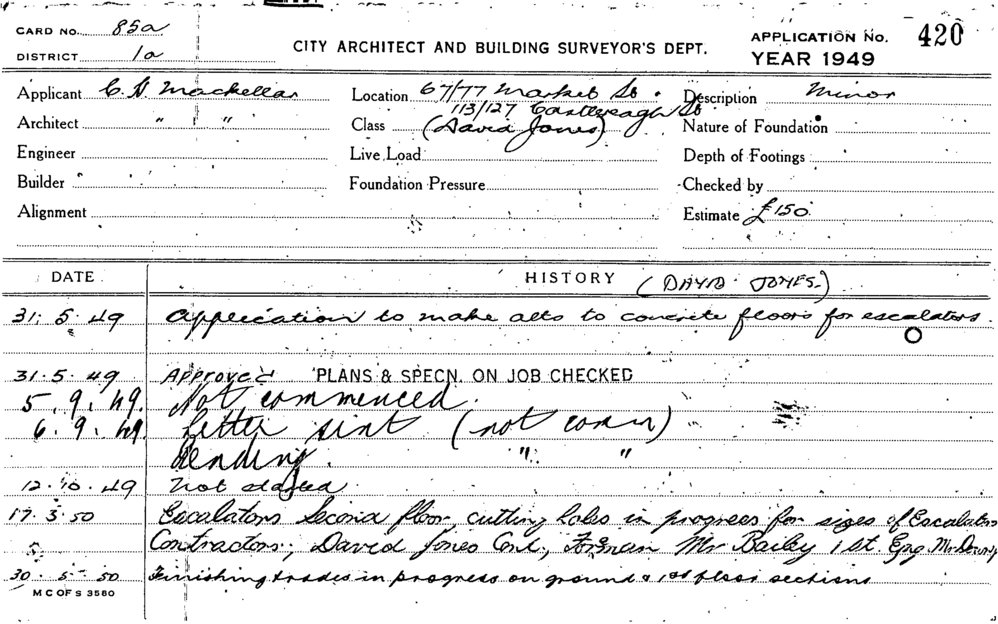 CARD NO. 85a
DISTRICT 1a
CITY ARCHITECT AND BUILDING SURVEYOR'S DEPT.
APPLICATION No. 420
YEAR 1949
Applicant C. H. Mackellar
Architect " " "
Engineer
Builder
Alignment
Location 67/77 Market St.
113/127 Castlereagh St
Class (David Jones)
Live Load
Foundation Pressure
Description Minor
Nature of Foundation
Depth of Footings
Checked by
Estimate £150
DATE HISTORY (DAVID JONES.)
31.5.49 Application to make alts to concrete floors for escalators.
31.5.49 Approved PLANS & SPECN. ON JOB CHECKED
5.9.49. Not commenced.
6.9.49. Letter sent (not comm)
Pending. " "
12.10.49 Not started
17.3.50 Escalators Second floor, cutting holes in progress for sizes of Escalators
Contractors; David Jones Cont., Foreman Mr Bailey 1st. Eng. Mr
30.5.50 Finishing trades in progress on ground & 1st floor sections
M C OF S 3580